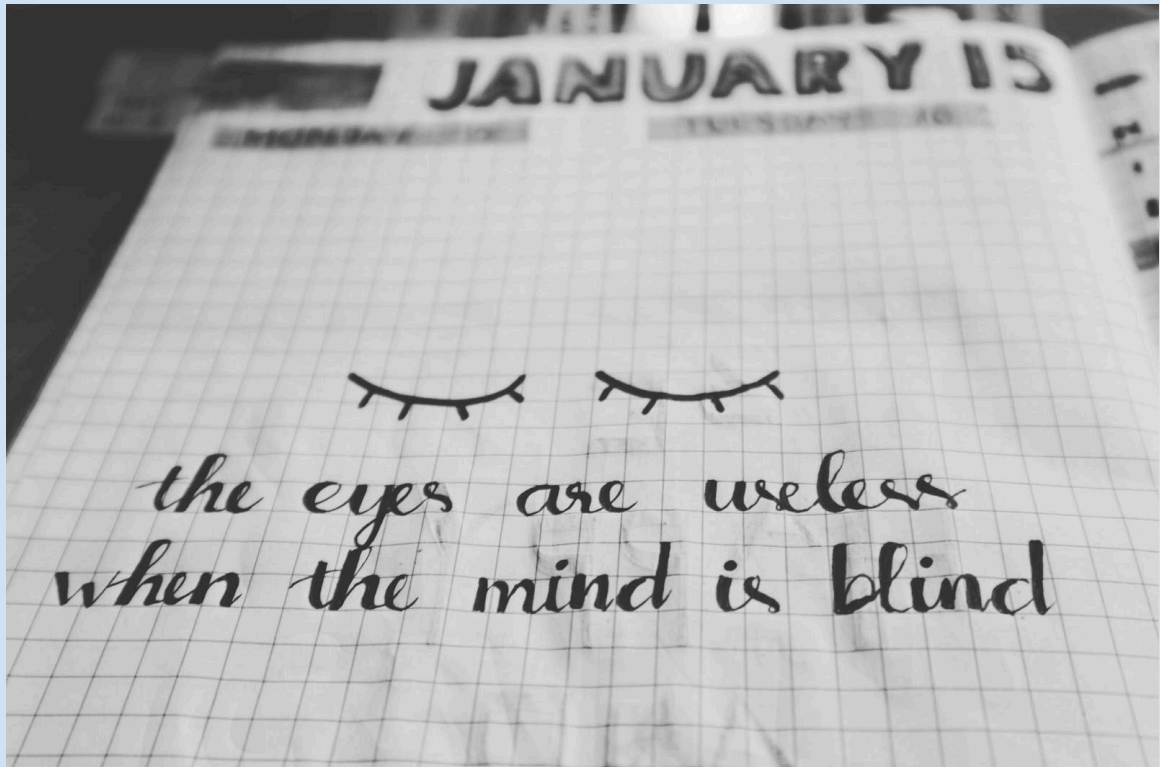 JANUARY 15
TUESDAY 16
the eyes are useless
when the mind is blind